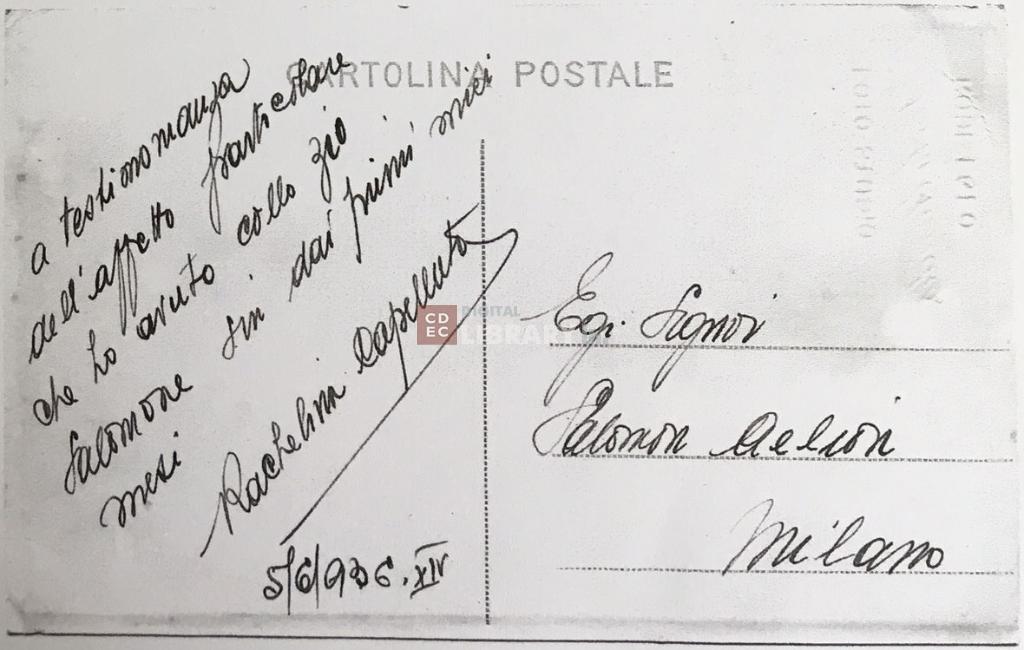 CARTOLINA POSTALE
a testimonianza
dell'affetto particolare
che ho avuto collo zio
Salomone sin dai primi miei
mesi
Rachelina Capelluto
5/6/936.XIV
Egr. Signor
Salomon Aelion
Milano
CDEC DIGITAL
LIBRARY